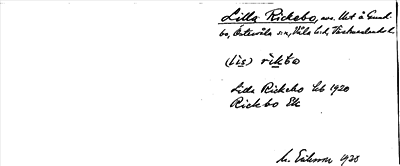 Lilla Rickebo, avs. Utt å Gunnbo,
Östervåla sn, Våla hd, Västmanlands l.
(lìs) rìkbo
Lilla Rickebo Jb 1920
Rickbo Ek
M. Eriksson 1928